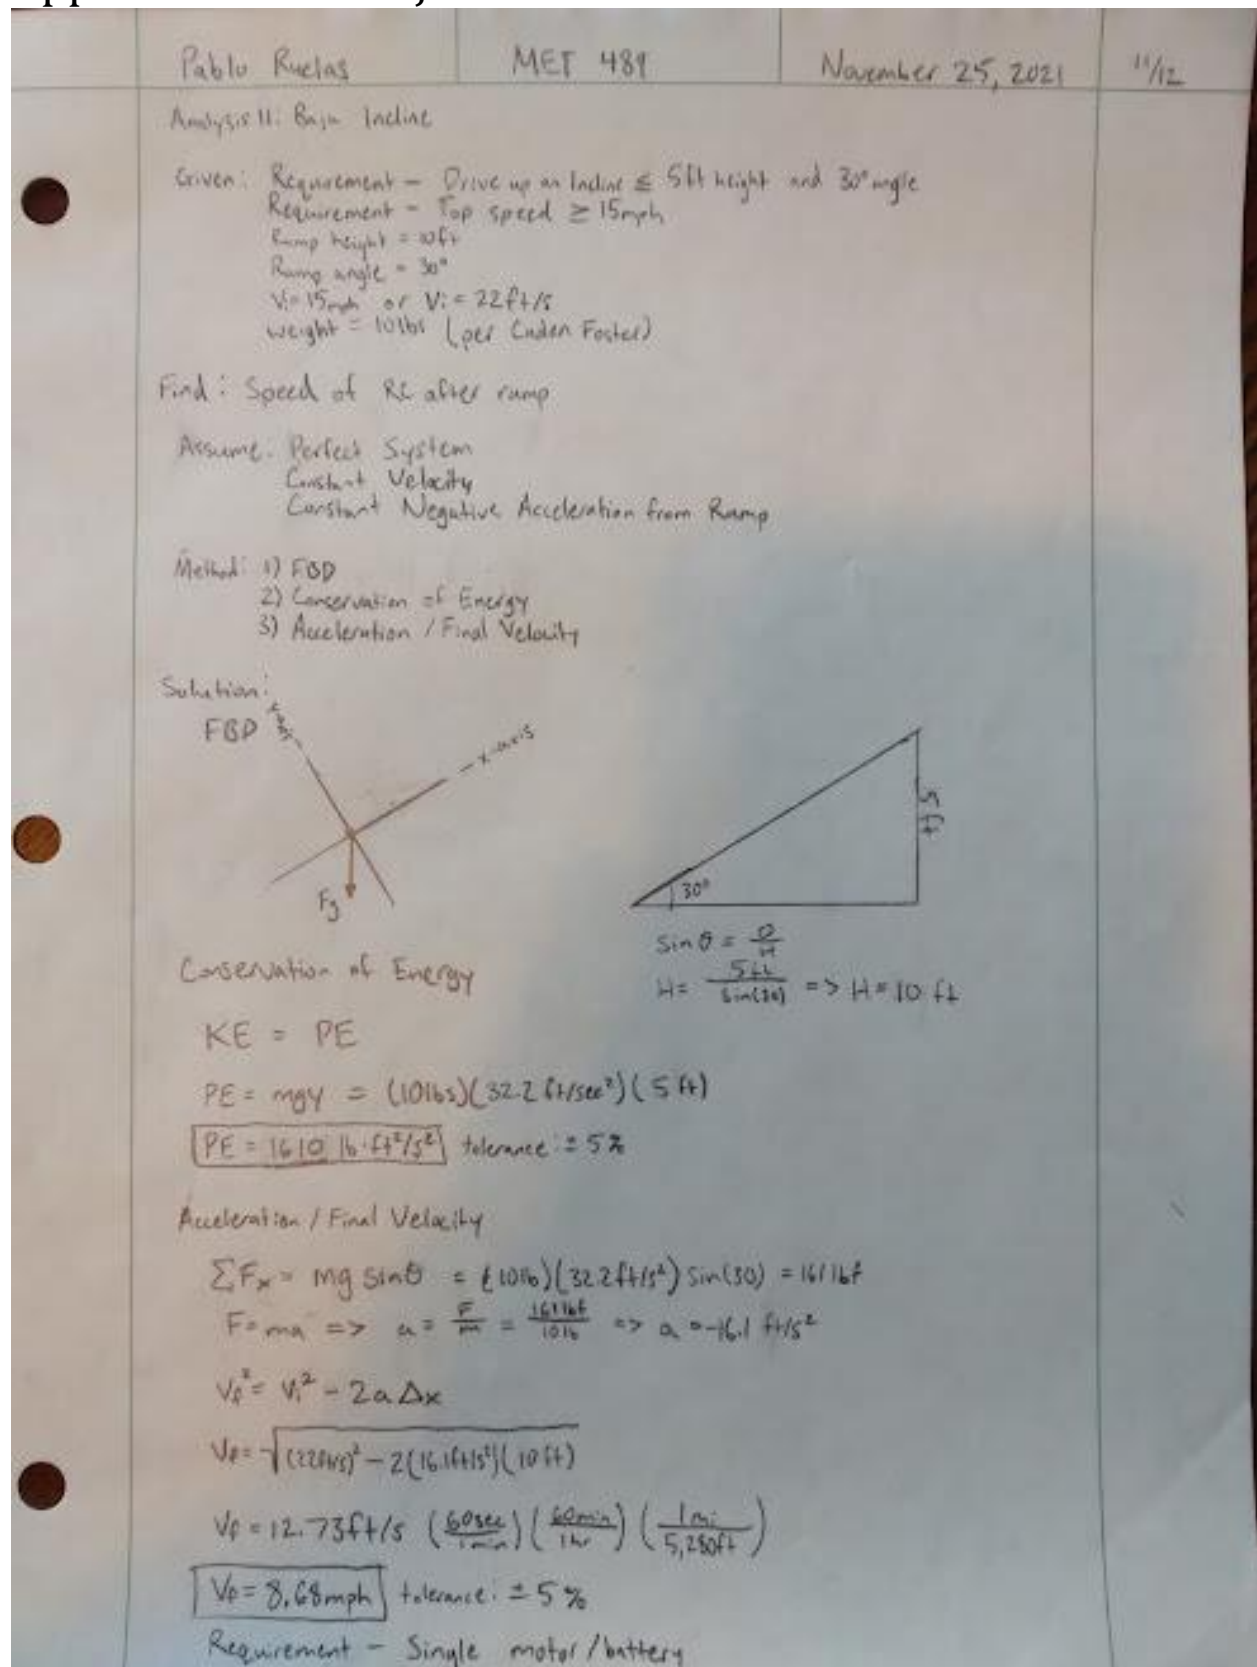 Pablo Ruelas MET 489 November 25, 2021 11/12
Analysis 11: Baja Incline
Given: Requirement - Drive up an Incline ≤ 5ft height and 30° angle
Requirement - Top speed ≥ 15mph
Ramp height = 10ft
Ramp angle = 30°
Vi = 15mph or Vi = 22ft/s
weight = 10lbs (per Caden Foster)
Find: Speed of RC after ramp
Assume: Perfect System
Constant Velocity
Constant Negative Acceleration from Ramp
Method: 1) FBD
2) Conservation of Energy
3) Acceleration / Final Velocity
Solution:
FBD
x-axis
Fg
5 ft
30°
Sin θ = O/H
H = 5ft/Sin(30) => H = 10 ft
Conservation of Energy
KE = PE
PE = mgy = (10lbs)(32.2 ft/sec²)(5 ft)
PE = 1610 lb·ft²/s² tolerance: ± 5%
Acceleration / Final Velocity
ΣFx = mg sinθ = (10lb)(32.2ft/s²) Sin(30) = 161 lbf
F = ma => a = F/m = 161lbf/10lb => a = -16.1 ft/s²
Vf² = Vi² - 2aΔx
Vf = √(22ft/s)² - 2(16.1ft/s²)(10ft)
Vf = 12.73ft/s (60sec/1min) (60min/1hr) (1mi/5,280ft)
Vf = 8.68mph tolerance: ± 5%
Requirement - Single motor/battery